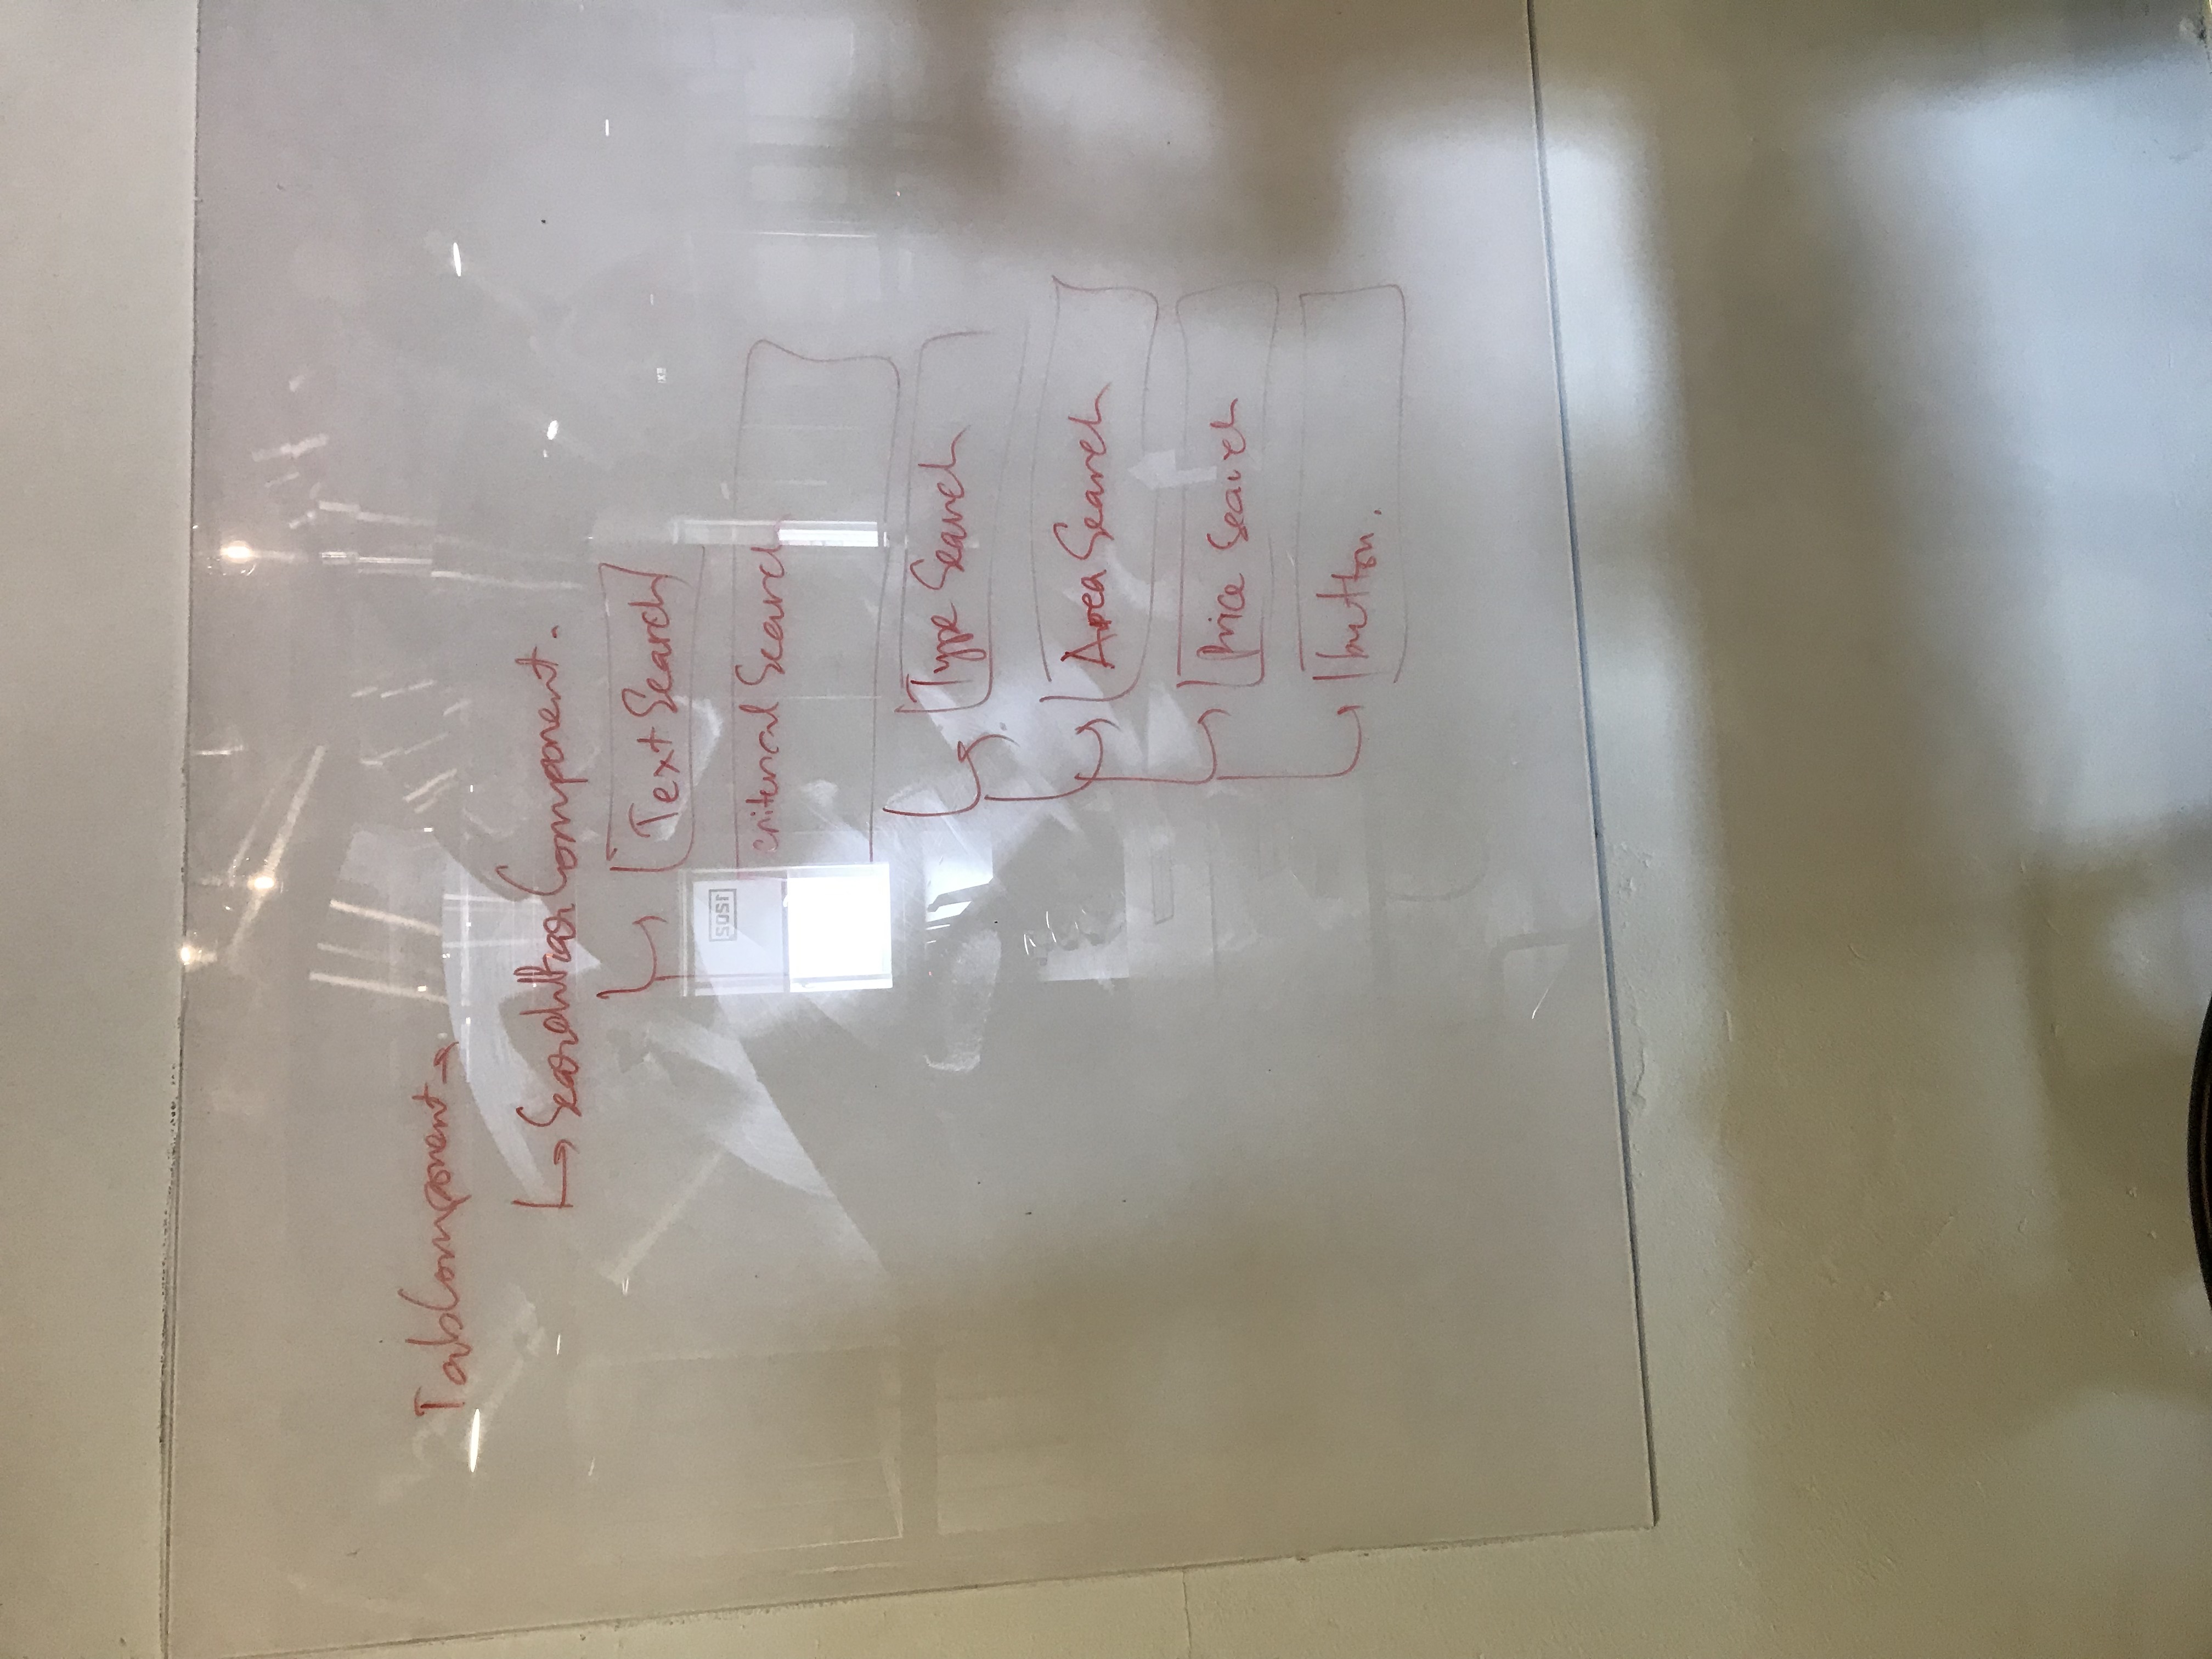 TabComponent
SearchBarComponent.
Text Search
criterial Search
Type Search
Area Search
Price Search
button.